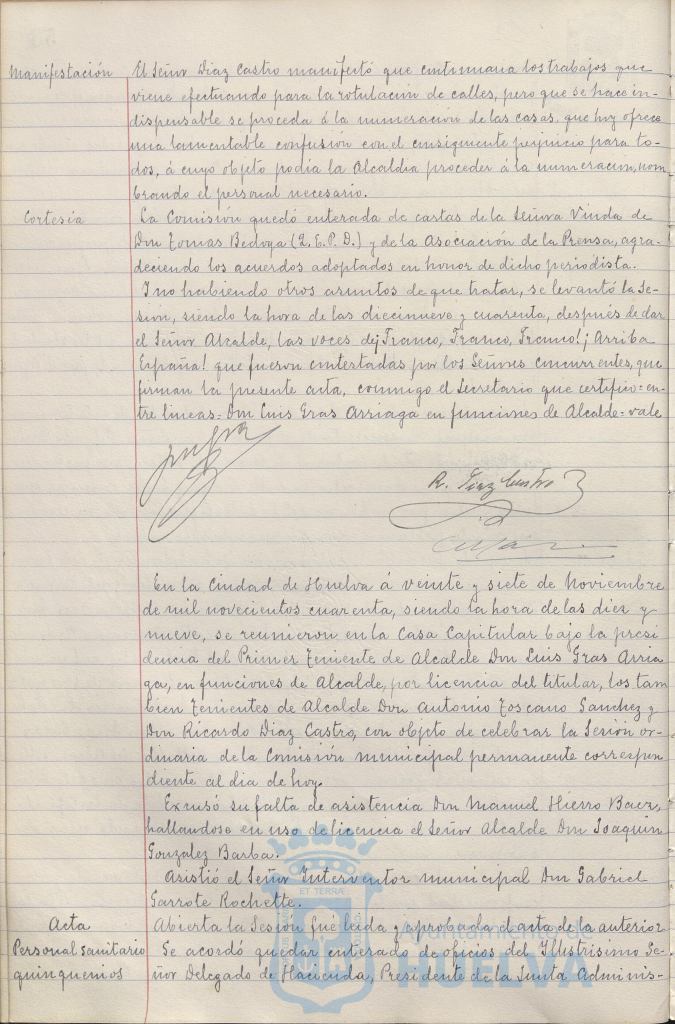 Manifestación El Señor Diaz Castro manifestó que continuaria los trabajos que
viene efectuando para la rotulación de calles, pero que se hace in-
dispensable se proceda á la numeración de las casas, que hoy ofrece
una lamentable confusión con el consiguiente perjuicio para to-
dos, á cuyo objeto podia la Alcaldia proceder á la numeración, nom-
brando el personal necesario.
Cortesia La Comisión quedó enterada de cartas de la Señora Viuda de
Don Tomas Bedoya (Q.E.P.D.) y de la Asociación de la Prensa, agra-
deciendo los acuerdos adoptados en honor de dicho periodista.
Y no habiendo otros asuntos de que tratar, se levantó la Se-
sion, siendo la hora de las diecinueve y cuarenta, despues de dar
el Señor Alcalde, las voces de ¡Franco, Franco, Franco! ¡Arriba
España! que fueron contestadas por los Señores concurrentes, que
firman la presente acta, conmigo el Secretario que certifico=en-
tre lineas= Don Luis Gras Arriaga en funciones de Alcalde=vale
R. Diaz Castro
En la Ciudad de Huelva á veinte y siete de Noviembre
de mil novecientos cuarenta, siendo la hora de las diez y
nueve, se reunieron en la Casa Capitular bajo la presi
dencia del Primer Teniente de Alcalde Don Luis Gras Arria
ga, en funciones de Alcalde, por licencia del titular, los tam
bien Tenientes de Alcalde Don Antonio Toscano Sanchez y
Don Ricardo Diaz Castro, con objeto de celebrar la Sesión or-
dinaria de la Comisión municipal permanente correspon
diente al dia de hoy.
Excusó su falta de asistencia Don Manuel Hierro Baez,
hallandose en uso de licencia el Señor Alcalde Don Joaquin
Gonzalez Barba.
Asistió el Señor Interventor municipal Don Gabriel
Garrote Rochette.
Acta Abierta la Sesión fué leida y aprobada el acta de la anterior
Personal sanitario Se acordó quedar enterado de oficios del Ilustrisimo Se-
quinquenios ñor Delegado de Hacienda, Presidente de la Junta Adminis-
ET TERRÆ
Ayuntamiento de
HUELVA